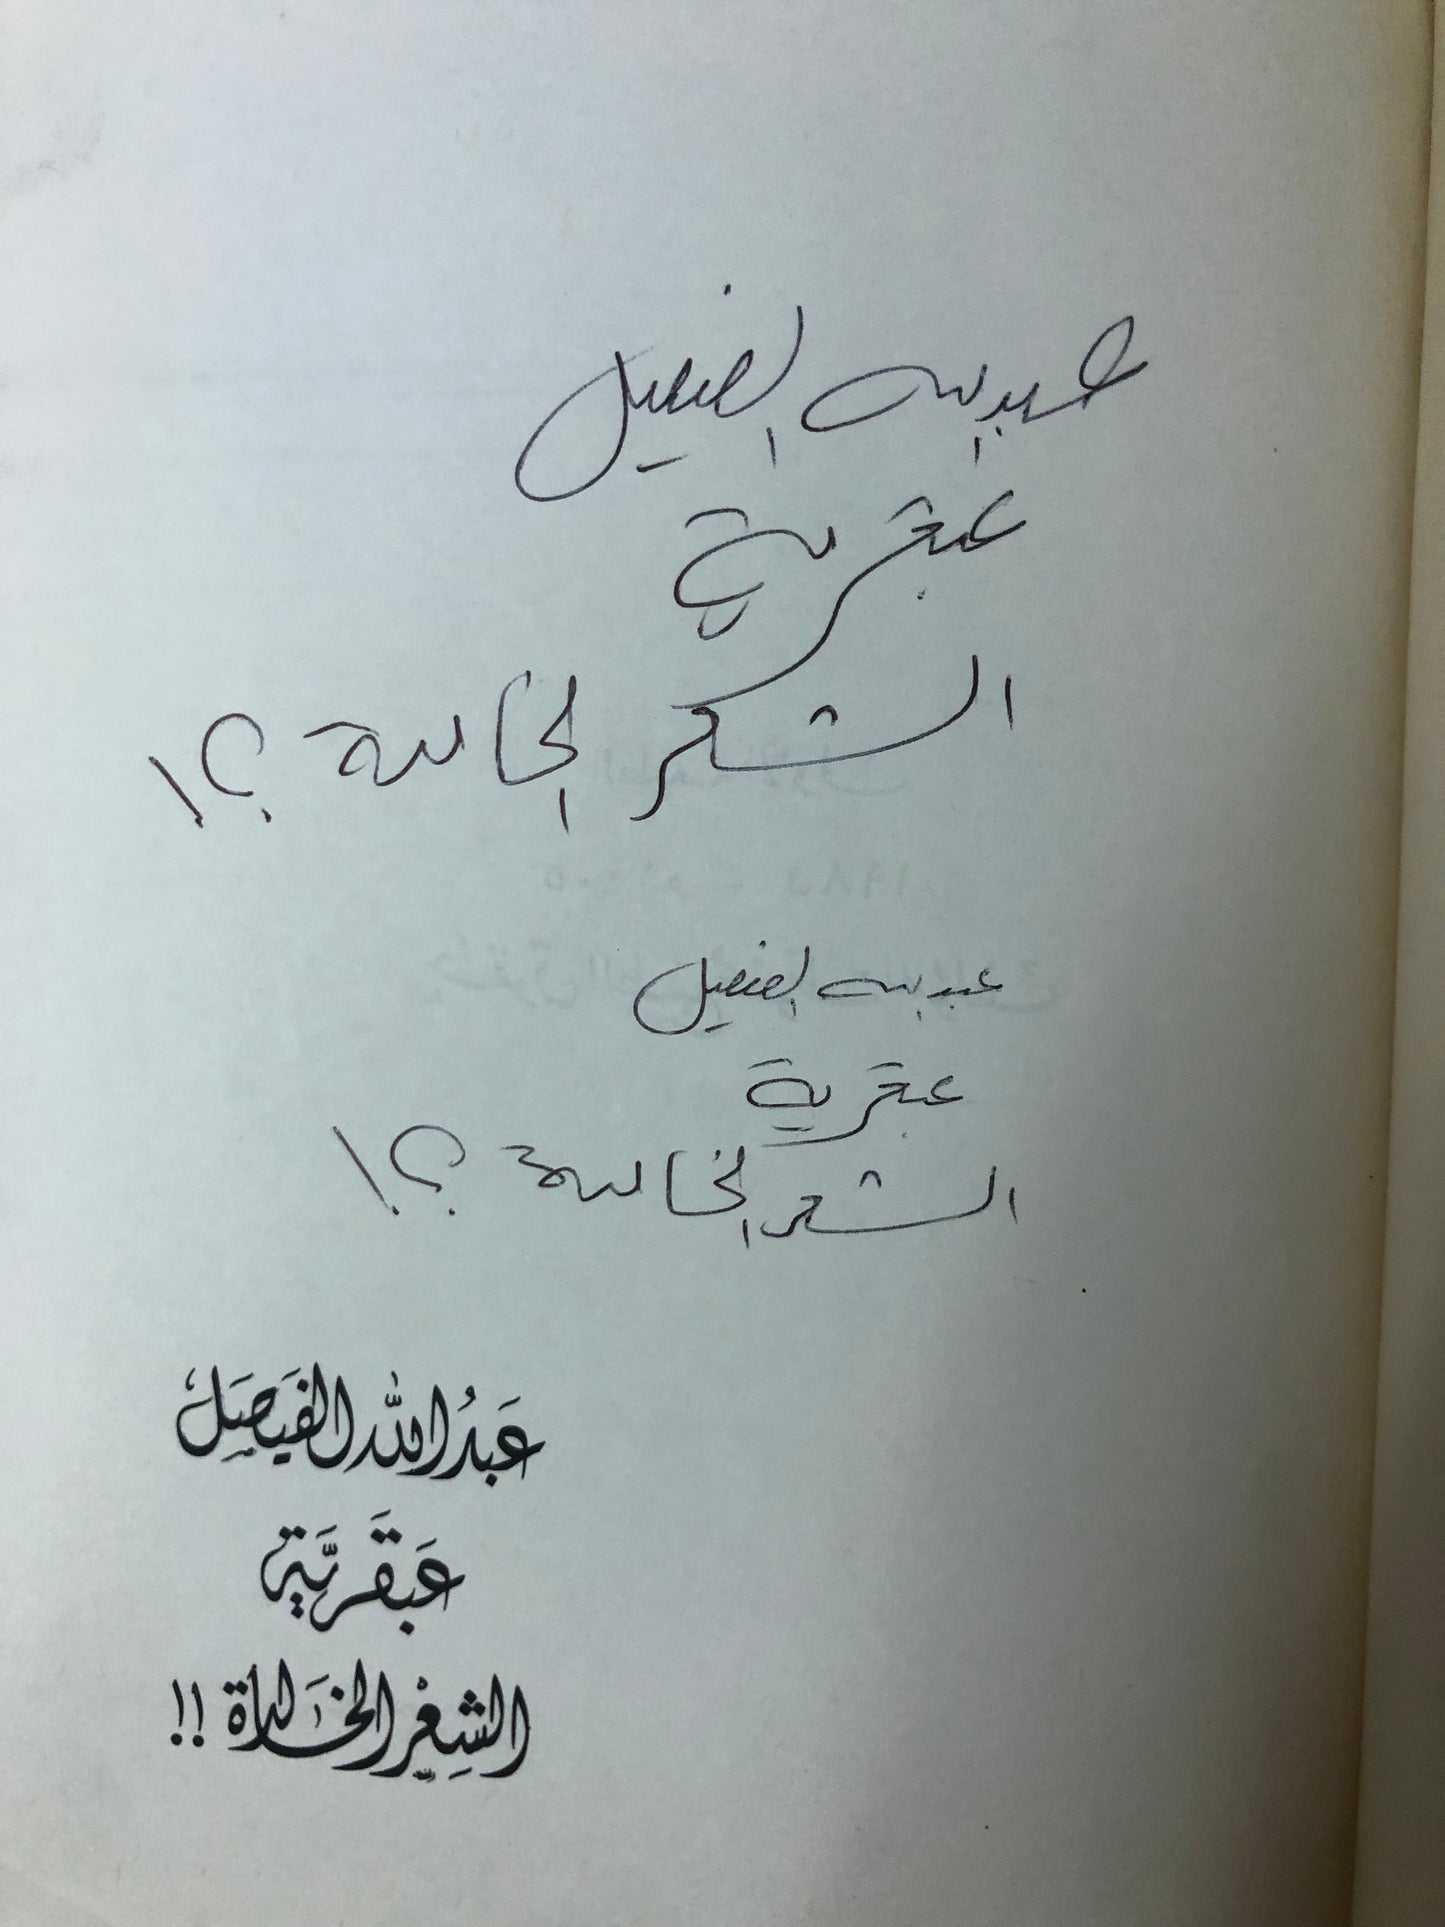 عبد الله الفيصل
عبقرية
الشعر الخالدة ؟!
عبد الله الفيصل
عبقرية
الشعر الخالدة ؟!
عَبدُ الله الفَيصَل
عَبقَريَّة
الشِعْر الخَالدة !!